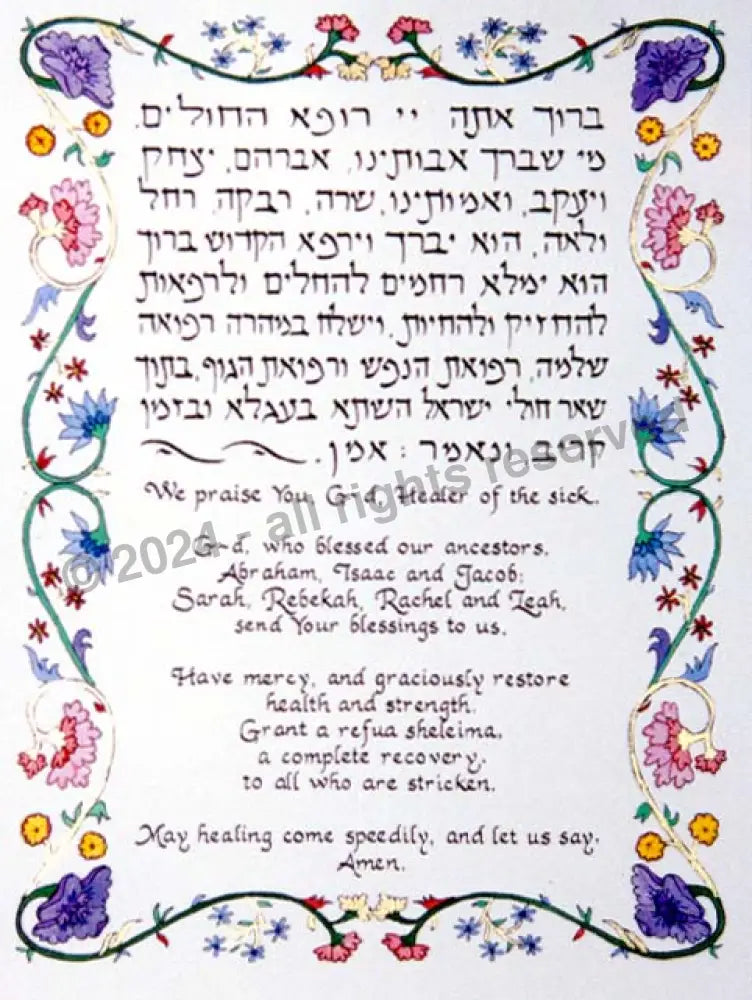 ברוך אתה יי רופא החולים.
מי שברך אבותינו, אברהם, יצחק
ויעקב, ואמותינו, שרה, רבקה, רחל
ולאה, הוא יברך וירפא הקדוש ברוך
הוא ימלא רחמים להחלים ולרפאות
להחזיק ולהחיות, וישלח במהרה רפואה
שלמה, רפואת הנפש ורפואת הגוף, בתוך
שאר חולי ישראל השתא בעגלא ובזמן
קריב ונאמר: אמן.
We praise You, G-d, Healer of the sick.
G-d, who blessed our ancestors,
Abraham, Isaac and Jacob;
Sarah, Rebekah, Rachel and Leah,
send Your blessings to us.
Have mercy, and graciously restore
health and strength.
Grant a refua sheleima,
a complete recovery,
to all who are stricken.
May healing come speedily, and let us say,
Amen.
© 2024 - all rights reserved